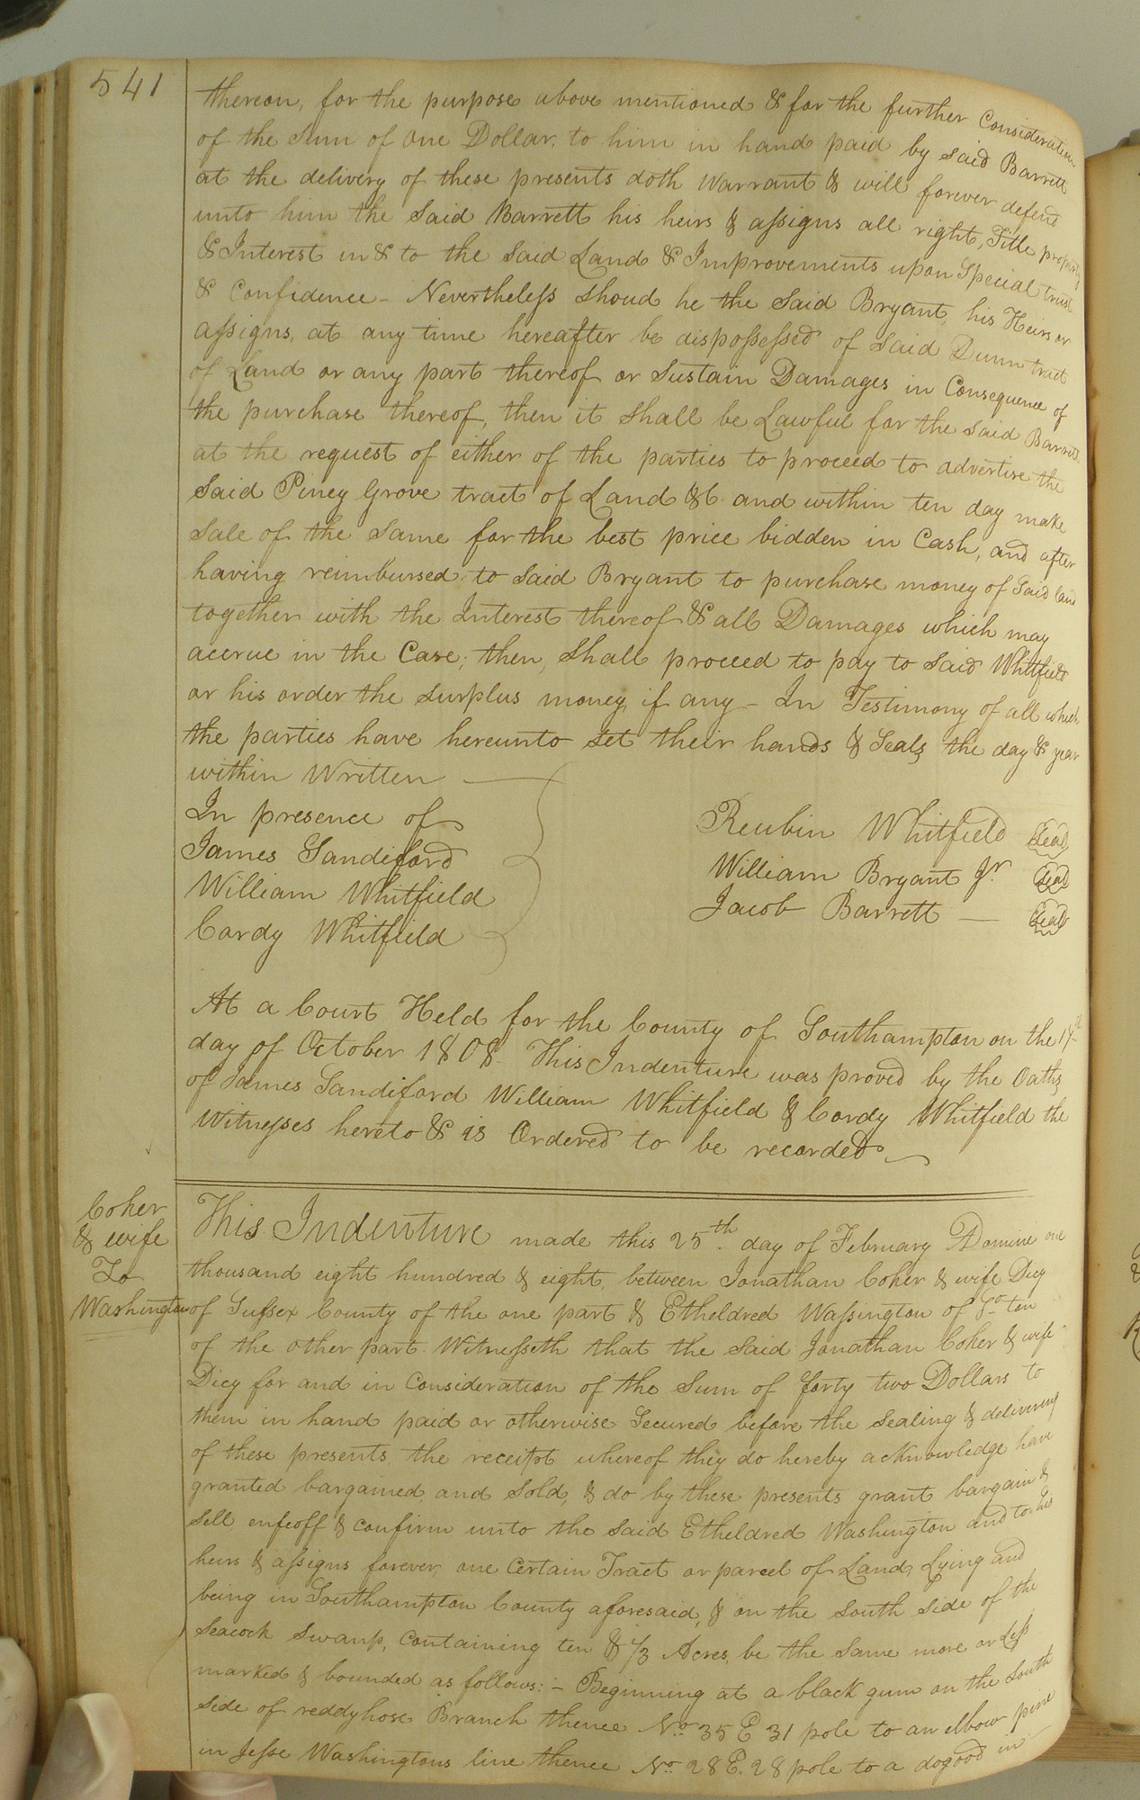 541
thereon, for the purpose above mentioned & for the further Consideration
of the Sum of one Dollar, to him in hand paid by said Barrett
at the delivery of these presents doth Warrant & will forever defend
unto him the Said Barrett his heirs & assigns all right, Title property
& Interest in & to the Said Land & Improvements upon Special trust
& Confidence - Nevertheless shoud he the Said Bryant, his Heirs or
assigns, at any time hereafter be dispossessed of Said Dunn tract
of Land or any part thereof or Sustain Damages in Consequence of
the purchase thereof, then it shall be Lawful for the Said Barrett
at the request of either of the parties to proceed to advertise the
Said Piney Grove tract of Land &C and within ten day make
Sale of the Same for the best price bidden in Cash, and after
having reimbursed to Said Bryant to purchase money of Said Land
together with the Interest thereof & all Damages which may
accrue in the Case; then, Shall proceed to pay to Said Whitfield
or his order the surplus money, if any - In Testimony of all which
the parties have hereunto Set their hands & Seals the day & year
within Written
In presence of
James Sandiford
William Whitfield
Cordy Whitfield
Reubin Whitfield Seal
William Bryant Jr Seal
Jacob Barrett — Seal
At a Court Held for the County of Southampton on the
day of October 1808. This Indenture was proved by the Oaths
of James Sandiford William Whitfield & Cordy Whitfield the
Witnesses hereto & is Ordered to be recorded
Coher
& wife
To
Washington
This Indenture made this 25th day of February Domini one
thousand eight hundred & eight, between Jonathan Coher & wife Dicy
of Sussex County of the one part & Etheldred Wassington of So ton
of the other part Witnesseth that the Said Jonathan Coher & wife
Dicy for and in Consideration of the Sum of forty two Dollars to
them in hand paid or otherwise Secured before the Sealing & delivering
of these presents, the receipt whereof they do hereby acknowledge have
granted bargained and Sold, & do by these presents grant bargain &
Sell enfeoff & confirm unto the Said Etheldred Washington and to his
heirs & assigns forever, one Certain Tract or parcel of Land, Lying and
being in Southampton County aforesaid, & on the South Side of the
Seacock Swamp, Containing ten & 1/3 Acres, be the Same more or Less
marked & bounded as follows: - Beginning at a black gum on the South
Side of reddyhose Branch thence No 35 E 31 pole to an elbow pine
in Jesse Washingtons line thence No 28 E. 28 pole to a dogood in